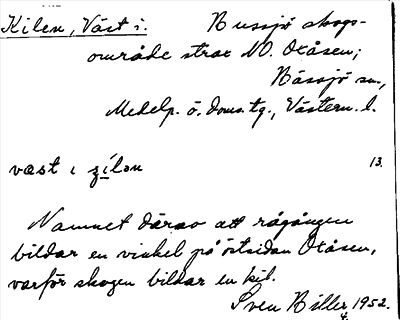 Kilen, Väst i. Bussjö skogs-
område strax NO. Oxåsen;
Bässjö sn.,
Medelp. ö. doms.tg., Västern. l.
væst ɩ ʒílən 13.
Namnet därav att rågången
bildar en vinkel på östsidan Oxåsen,
varför skogen bildar en kil.
Sven Biller 1952.